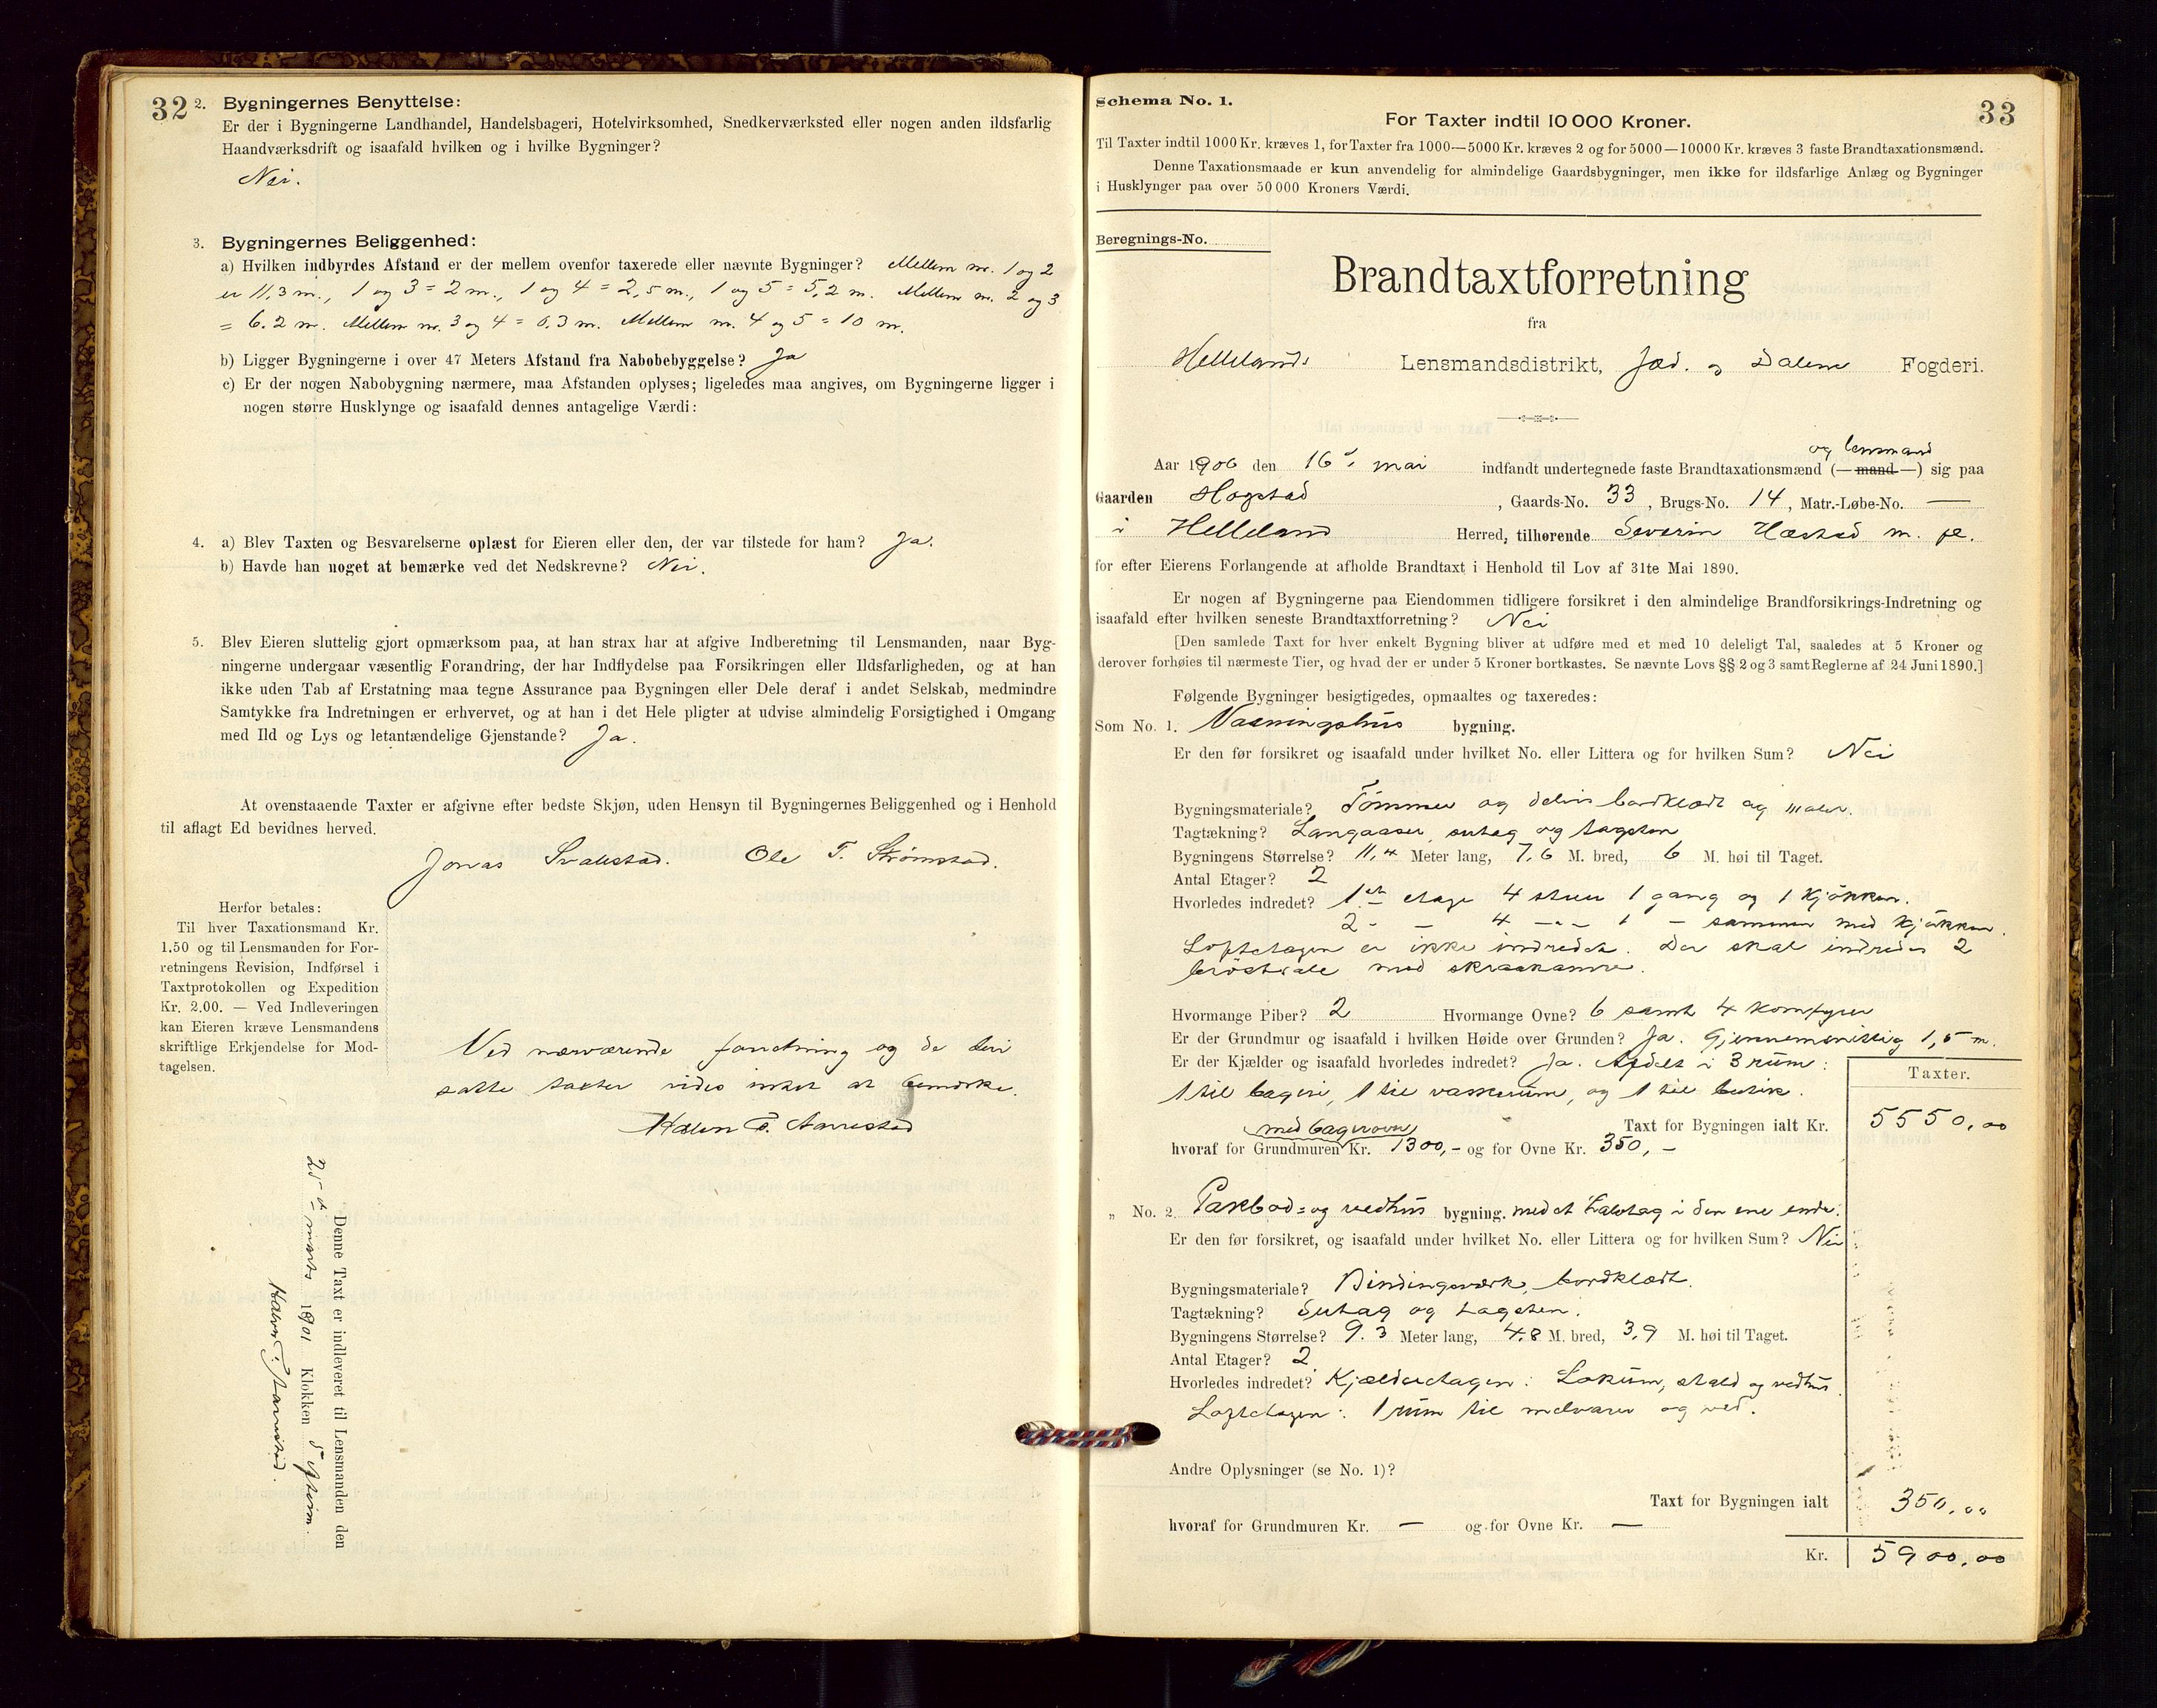 32
2. Bygningernes Benyttelse:
Er der i Bygningerne Landhandel, Handelsbageri, Hotelvirksomhed, Snedkerværksted eller nogen anden ildsfarlig
Haandværksdrift og isaafald hvilken og i hvilke Bygninger?
Nei.
3. Bygningernes Beliggenhed:
a) Hvilken indbyrdes Afstand er der mellem ovenfor taxerede eller nævnte Bygninger? Mellem nr. 1 og 2
er 11,3 m., 1 og 3 = 2 m., 1 og 4 = 2,5 m., 1 og 5 = 5,2 m. Mellem nr. 2 og 3
= 6.2 m. Mellem nr. 3 og 4 = 0.3 m. Mellem nr. 4 og 5 = 10 m.
b) Ligger Bygningerne i over 47 Meters Afstand fra Nabobebyggelse? Ja
c) Er der nogen Nabobygning nærmere, maa Afstanden oplyses; ligeledes maa angives, om Bygningerne ligger i
nogen større Husklynge og isaafald dennes antagelige Værdi:
4. a) Blev Taxten og Besvarelserne oplæst for Eieren eller den, der var tilstede for ham? Ja.
b) Havde han noget at bemærke ved det Nedskrevne? Nei.
5. Blev Eieren sluttelig gjort opmærksom paa, at han strax har at afgive Indberetning til Lensmanden, naar Byg-
ningerne undergaar væsentlig Forandring, der har Indflydelse paa Forsikringen eller Ildsfarligheden, og at han
ikke uden Tab af Erstatning maa tegne Assurance paa Bygningen eller Dele deraf i andet Selskab, medmindre
Samtykke fra Indretningen er erhvervet, og at han i det Hele pligter at udvise almindelig Forsigtighed i Omgang
med Ild og Lys og letantændelige Gjenstande? Ja.
At ovenstaaende Taxter er afgivne efter bedste Skjøn, uden Hensyn til Bygningernes Beliggenhed og i Henhold
til aflagt Ed bevidnes herved.
Jonas Ole T. Strømstad.
Herfor betales:
Til hver Taxationsmand Kr.
1.50 og til Lensmanden for For-
retningens Revision, Indførsel i
Taxtprotokollen og Expedition
Kr. 2.00. — Ved Indleveringen
kan Eieren kræve Lensmandens
skriftlige Erkjendelse for Mod-
tagelsen.
Ved nærværende forretning og de deri
satte taxter vides intet at bemærke.
T. Aarrestad
Denne Taxt er indleveret til Lensmanden den
25de marts 1901 Klokken 5 efterm.
Halvor T. Aarrestad.
33
Schema No. 1.
For Taxter indtil 10 000 Kroner.
Til Taxter indtil 1000 Kr. kræves 1, for Taxter fra 1000—5000 Kr. kræves 2 og for 5000—10000 Kr. kræves 3 faste Brandtaxationsmænd.
Denne Taxationsmaade er kun anvendelig for almindelige Gaardsbygninger, men ikke for ildsfarlige Anlæg og Bygninger
i Husklynger paa over 50 000 Kroners Værdi.
Beregnings-No.
Brandtaxtforretning
fra
Hellelands Lensmandsdistrikt, Jæd. og Dalene Fogderi.
og lensmand
Aar 1906 den 16de mai indfandt undertegnede faste Brandtaxationsmænd (—mand—) sig paa
Gaarden Hogstad, Gaards-No. 33, Brugs-No. 14, Matr.-Løbe-No. —
i Helleland Herred, tilhørende Severin Hæstad m. fl.
for efter Eierens Forlangende at afholde Brandtaxt i Henhold til Lov af 31te Mai 1890.
Er nogen af Bygningerne paa Eiendommen tidligere forsikret i den almindelige Brandforsikrings-Indretning og
isaafald efter hvilken seneste Brandtaxtforretning? Nei
[Den samlede Taxt for hver enkelt Bygning bliver at udføre med et med 10 deleligt Tal, saaledes at 5 Kroner og
derover forhøies til nærmeste Tier, og hvad der er under 5 Kroner bortkastes. Se nævnte Lovs §§ 2 og 3 samt Reglerne af 24 Juni 1890.]
Følgende Bygninger besigtigedes, opmaaltes og taxeredes:
Som No. 1. Vaaningshus bygning.
Er den før forsikret og isaafald under hvilket No. eller Littera og for hvilken Sum? Nei
Bygningsmateriale? Tømmer og delvis bordklædt og malet.
Tagtækning? Langaaser, sutag og tagsten
Bygningens Størrelse? 11,4 Meter lang, 7,6 M. bred, 6 M. høi til Taget.
Antal Etager? 2
Hvorledes indredet? 1ste etage 4 stuer 1 gang og 1 kjøkken.
2 - - 4 -"- 1 - sammen med kjøkken.
Loftetagen er ikke indredet. Der skal indredes 2
med skraakamre.
Hvormange Piber? 2 Hvormange Ovne? 6 samt 4 komfyrer
Er der Grundmur og isaafald i hvilken Høide over Grunden? Ja. Gjennemsnitlig 1,5 m.
Er der Kjælder og isaafald hvorledes indredet? Ja. Afdelt i 3 rum:
1 til bageri, 1 til vaskerum, og 1 til butik.
Taxter.
Taxt for Bygningen ialt Kr. 5550,00
med bagerovn
hvoraf for Grundmuren Kr. 1300,- og for Ovne Kr. 350,-
„ No. 2. Pakbod= og vedhus bygning. med et halvtag i den ene ende.
Er den før forsikret, og isaafald under hvilket No. eller Littera og for hvilken Sum? Nei
Bygningsmateriale? Bindingsværk, bordklædt.
Tagtækning? Sutag og tagsten.
Bygningens Størrelse? 9.3 Meter lang, 4.8 M. bred, 3,9 M. høi til Taget.
Antal Etager? 2
Hvorledes indredet? Kjælderetagen: Lokum, stald og vedhus.
Loftetagen: 1 rum til melvarer og ved.
Andre Oplysninger (se No. 1)?
Taxt for Bygningen ialt 350,00
hvoraf for Grundmuren Kr. — og for Ovne Kr. —
Kr. 5900,00